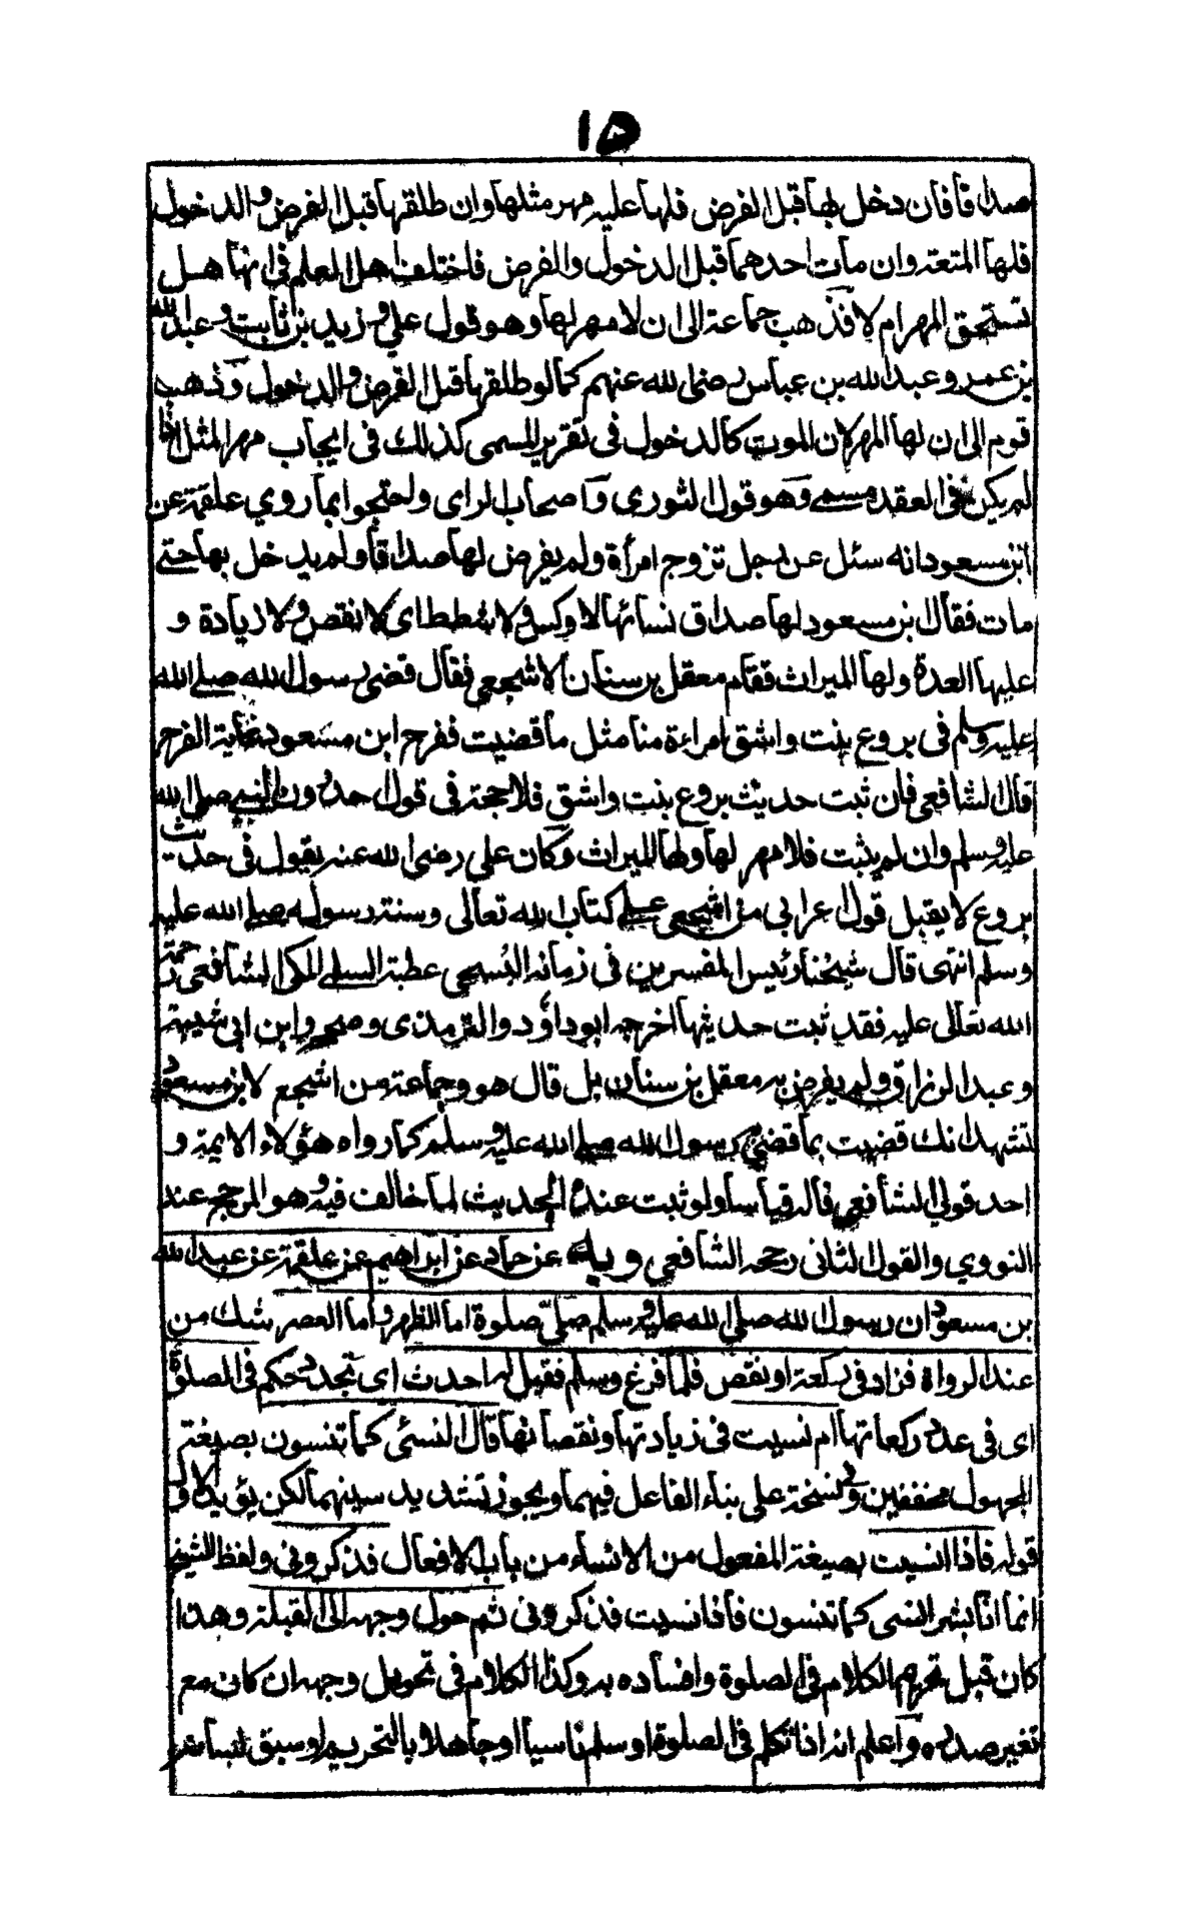 ١٥
صداقا فان دخل بها قبل الفرض فلها عليه مهر مثلها وان طلقها قبل الفرض والدخول
فلها المتعة وان مات احدهما قبل الدخول والفرض فاختلف اهل العلم فى انها هل
تستحق المهر ام لا فذهب جماعة الى ان لا مهر لها وهو قول علي وزيد بن ثابت وعبد الله
بن عمر وعبد الله بن عباس رضى الله عنهم كما لو طلقها قبل الفرض والدخول وذهب
قوم الى ان لها المهر لان الموت كالدخول فى تقرير المسمى كذلك فى ايجاب مهر المثل اذا
لم يكن فى العقد مسمى وهو قول الثورى واصحاب الراى واحتجوا بما روي علقمة عن
ابن مسعود انه سئل عن رجل تزوج امرأة ولم يفرض لها صداقا ولم يدخل بها حتى
مات فقال ابن مسعود لها صداق نسائها لا وكس ولا شطط اى لا نقص ولا زيادة و
عليها العدة ولها الميراث فقام معقل بن سنان الاشجعي فقال قضى رسول الله صلى الله
عليه وسلم فى بروع بنت واشق امراءة منا مثل ما قضيت ففرح ابن مسعود غاية الفرح
قال الشافعى فان ثبت حديث بروع بنت واشق فلا حجة فى قول احد دون النبى صلى الله
عليه وسلم وان لم يثبت فلا مهر لها ولها الميراث وكان علي رضى الله عنه يقول فى حديث
بروع لا يقبل قول اعرابي من اشجعى على كتاب الله تعالى وسنة رسوله صلى الله عليه
وسلم انتهى قال شيخنا رئيس المفسرين فى زمانه عطية السلمى المكى الشافعى رحمة
الله تعالى عليه فقد ثبت حديثها اخرجه ابو داؤد والترمذى وصححه وابن ابى شيبة
وعبد الرزاق ولم يفرض به معقل بن سنان بل قال هو وجماعة من اشجع لابن مسعود
نشهد انك قضيت بما قضى رسول الله صلى الله عليه وسلم كما رواه هؤلاء الايمة و
احد قولي الشافعي قاله قياسا ولو ثبت عنده الحديث لما خالف فيه وهو المرجح عند
النووي والقول الثانى رجحه الشافعي وبه عن حماد عن ابراهيم عن علقمة عن عبد الله
بن مسعود ان رسول الله صلى الله عليه وسلم صلى صلوة اما الظهر واما العصر شك من
عند الرواة فزاد فى ركعة او نقص فلما فرغ وسلم فقيل له احدث اى تجدد حكم فى الصلوة
اى فى عدد ركعاتها ام نسيت فى زيادتها ونقصانها قال انسى كما تنسون بصيغة
المجهول مخففين وفى نسخة على بناء الفاعل فيهما ويجوز تشديد سينهما لكن يؤيد الاول
قوله فاذا انسيت بصيغة المفعول من الانساء من باب الافعال فذكرونى ولفظ الشيخ
انما انا بشر انسى كما تنسون فاذا نسيت فذكرونى ثم حول وجهه الى القبلة وهذا
كان قبل تحريم الكلام فى الصلوة وافساده به وكذا الكلام فى تحويل وجهه ان كان مع
تغير صدره واعلم انه اذا تكلم فى الصلوة او سلم ناسيا او جاهلا بالتحريم او سبق لسانه